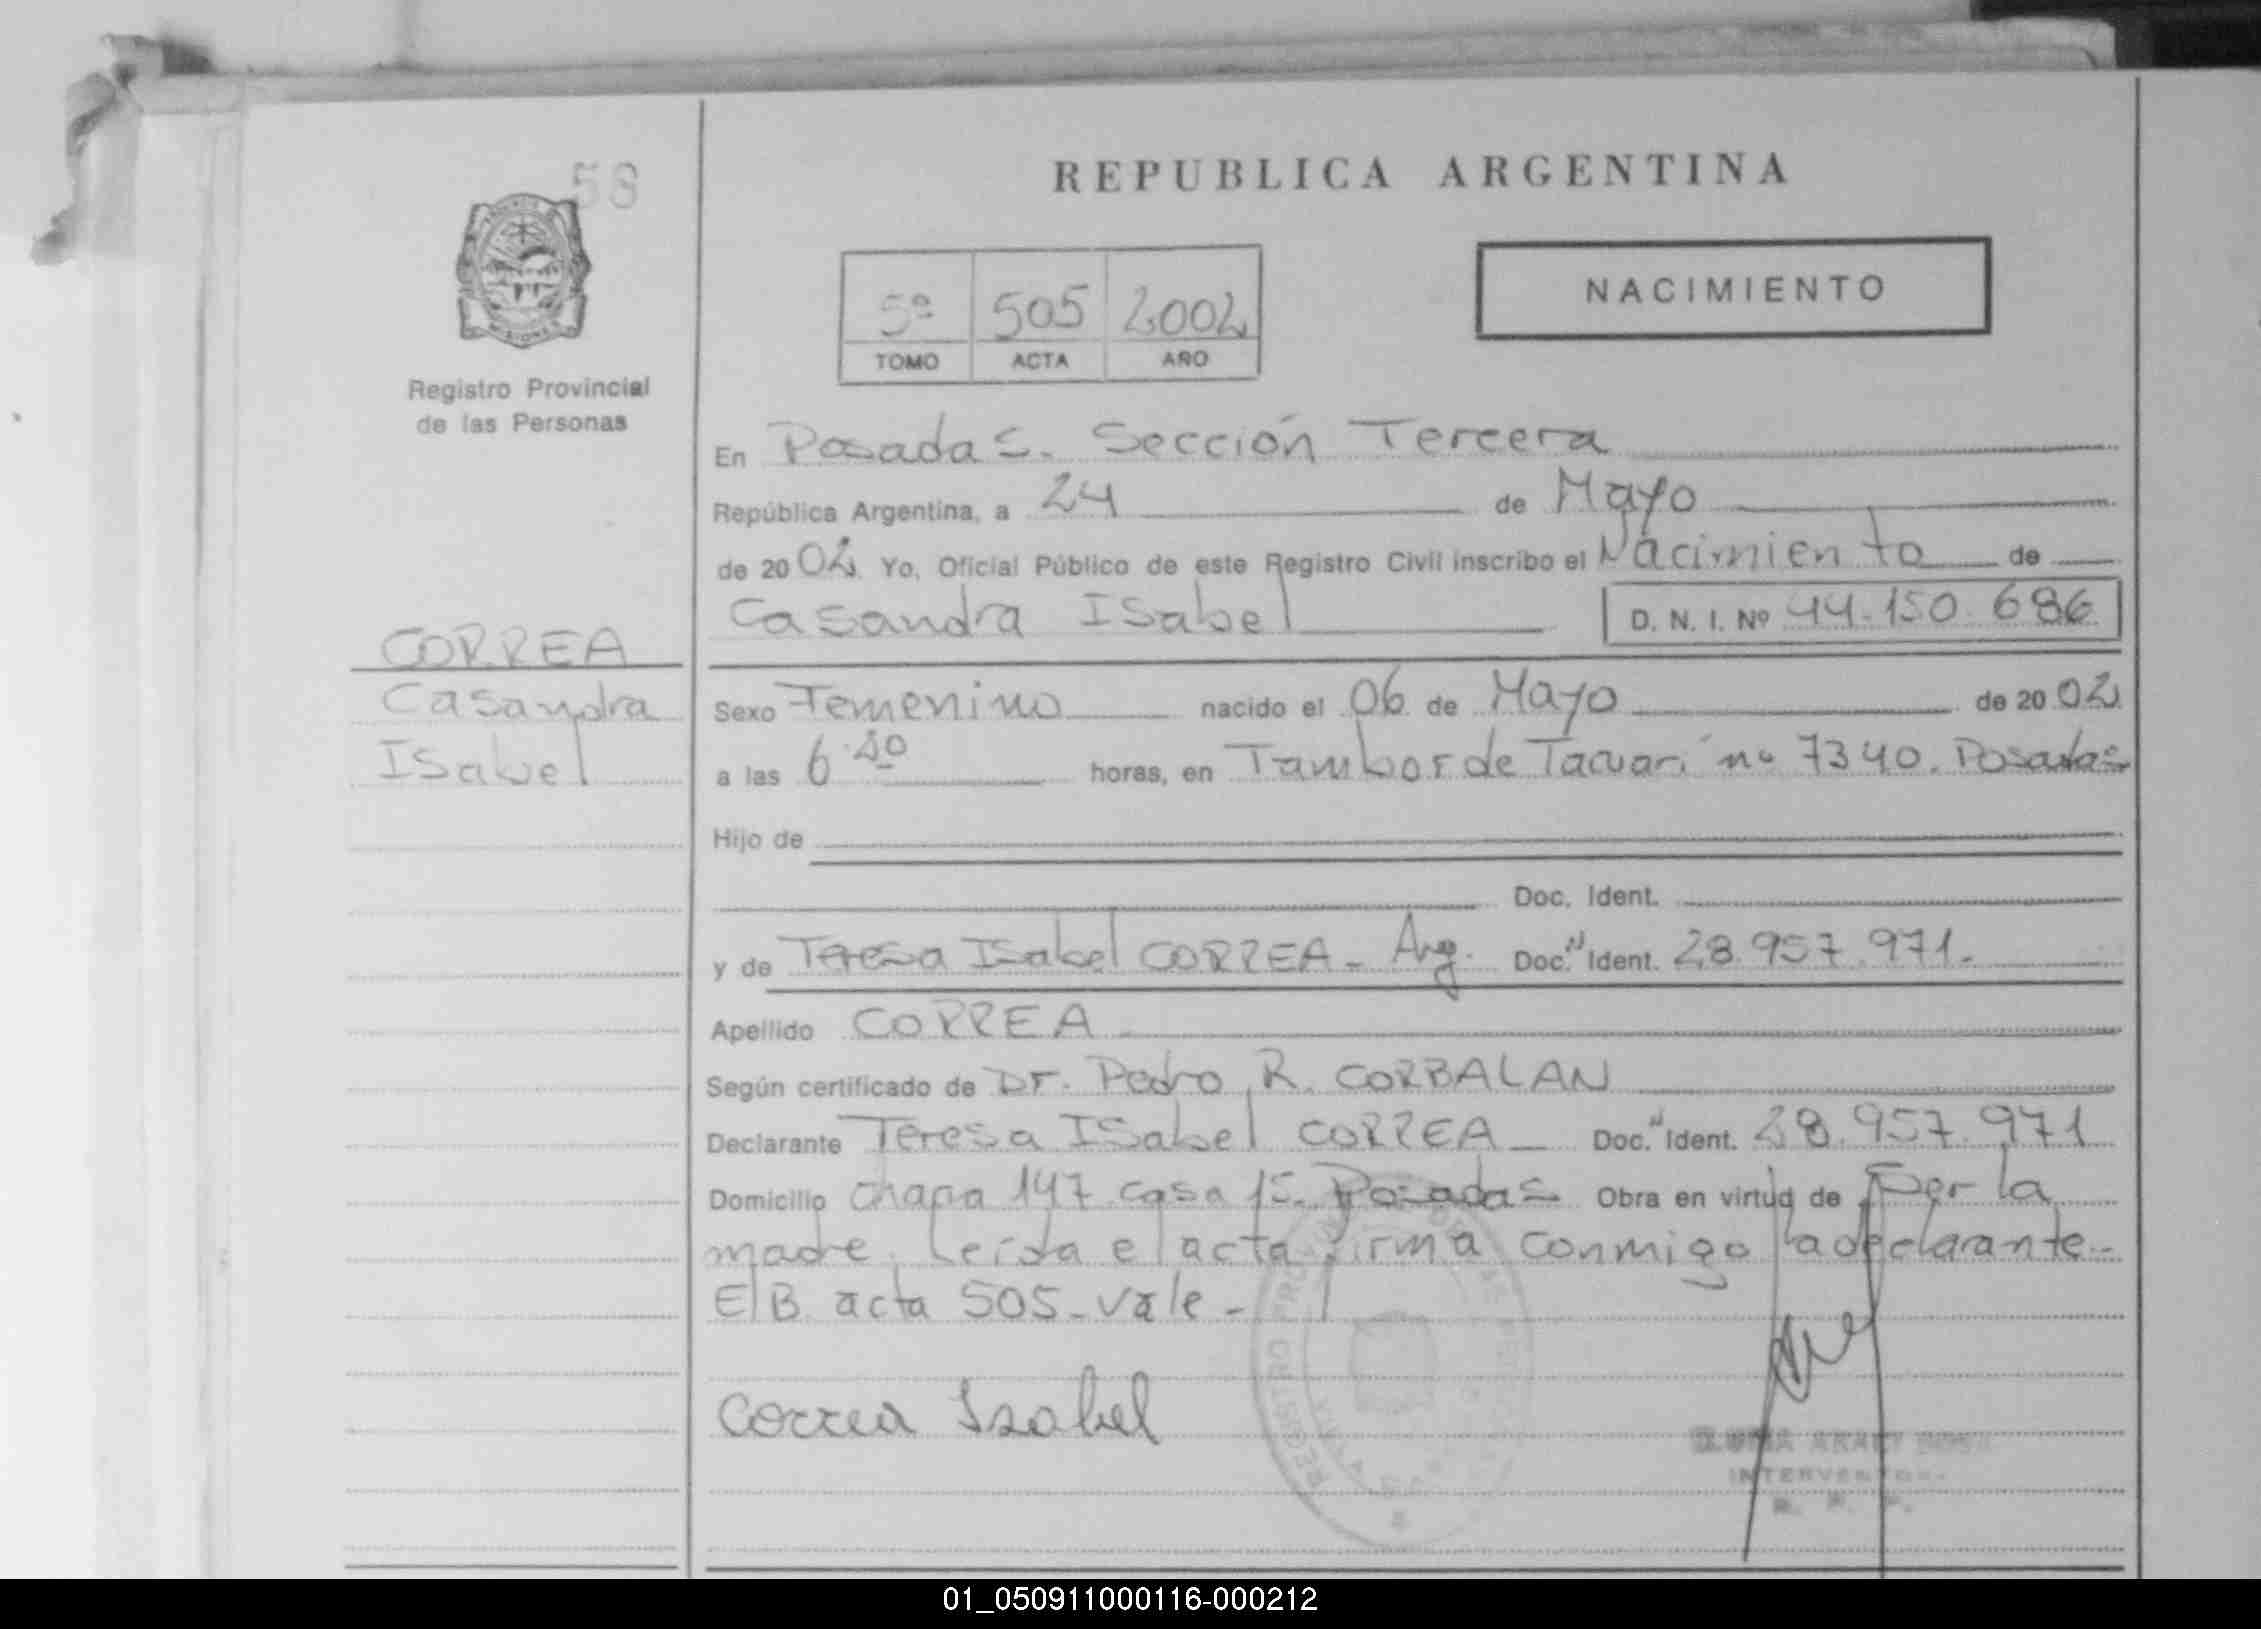 58
REPUBLICA ARGENTINA
NACIMIENTO
5º 505 2002
TOMO ACTA AÑO
Registro Provincial
de las Personas
En Posadas. Sección Tercera
República Argentina, a 24 de Mayo
de 2002 Yo, Oficial Público de este Registro Civil inscribo el Nacimiento de
Casandra Isabel D. N. I. Nº 44.150.686
CORREA
Casandra
Isabel
Sexo Femenino nacido el 06 de Mayo de 2002
a las 6 horas, en Tambor de Tacuarí nº 7340. Posadas
Hijo de
Doc. Ident.
y de Teresa Isabel CORREA - Arg. Doc. Ident. 28.957.971.
Apellido CORREA
Según certificado de Dr. Pedro R. CORBALAN
Declarante Teresa Isabel CORREA Doc. Ident. 28.957.971
Domicilio chapa 147 casa 15. Posadas Obra en virtud de Ser la
madre. Leída el acta firma conmigo la declarante-
E/B acta 505-vale-
Correa Isabel
REGISTRO
INTERVENTOR
R. P. P.
01_050911000116-000212